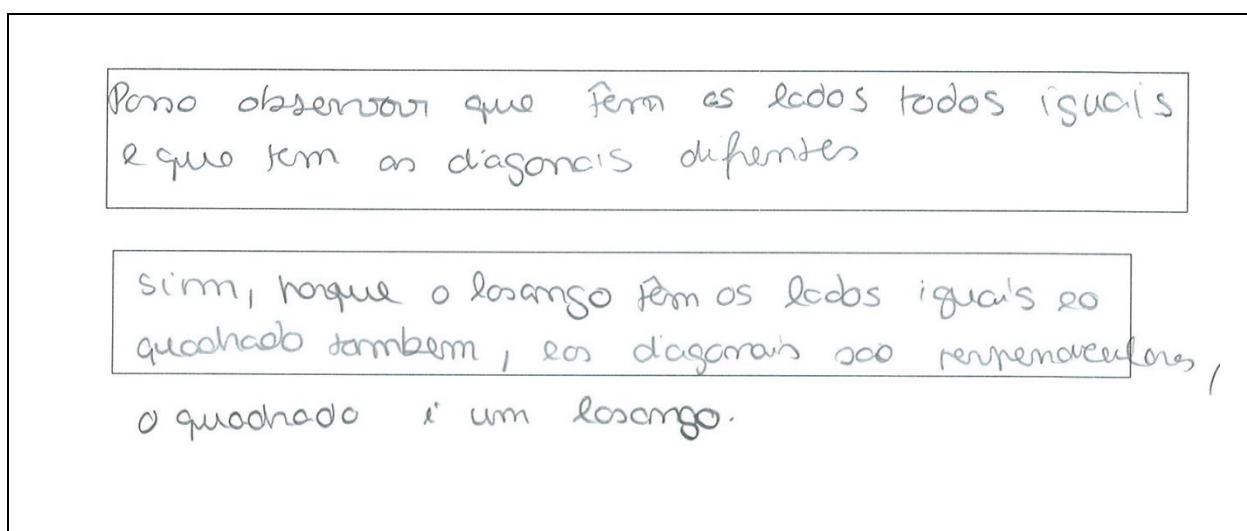 Posso observar que têm os lados todos iguais
e que tem as diagonais difrentes
sim, porque o losango têm os lados iguais e o
quadrado tambem, e as diagonais são perpendiculares,
o quadrado é um losango.